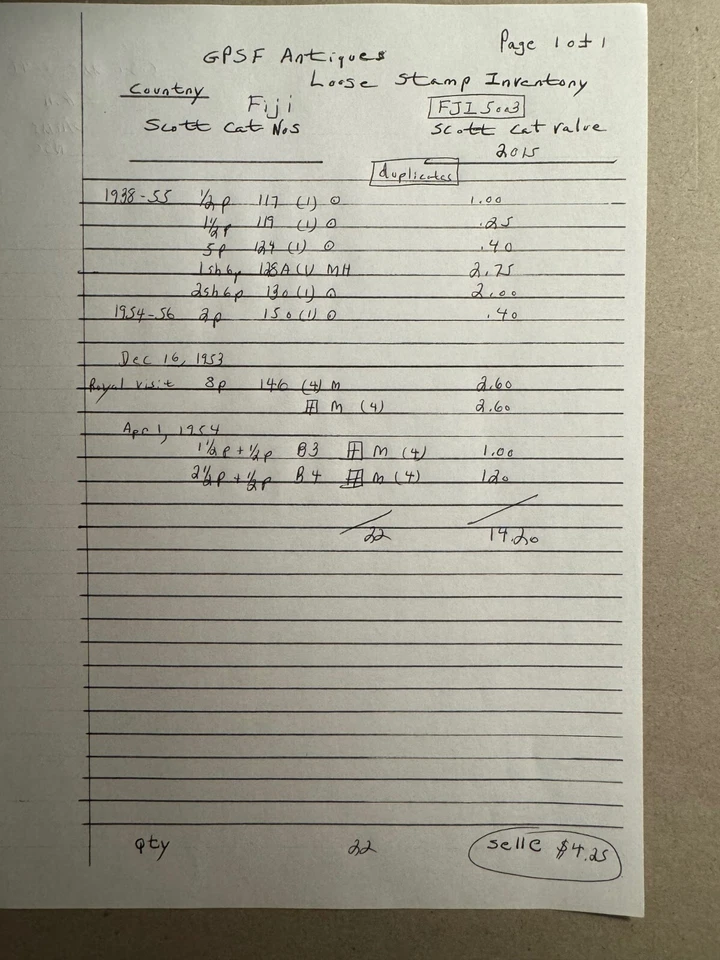 Page 1 of 1
GPSF Antiques
Loose Stamp Inventory
Country
Fiji
FJI 5003
Scott Cat Nos
Scott Cat value
2015
duplicates
1938-55 1/2p 117 (1) ⊙ 1.00
1 1/2p 119 (1) ⊙ .25
5p 124 (1) ⊙ .40
1sh6p 128A (1) MH 2.75
2sh6p 130 (1) ⊙ 2.00
1954-56 2p 150 (1) ⊙ .40
Dec 16, 1953
Royal visit 8p 146 (4) M 2.60
⊞ M (4) 2.60
Apr 1, 1954
1 1/2p + 1/2p B3 ⊞ M (4) 1.00
2 1/2p + 1/2p B4 ⊞ M (4) 1.20
22 14.20
qty 22 selle $4.25